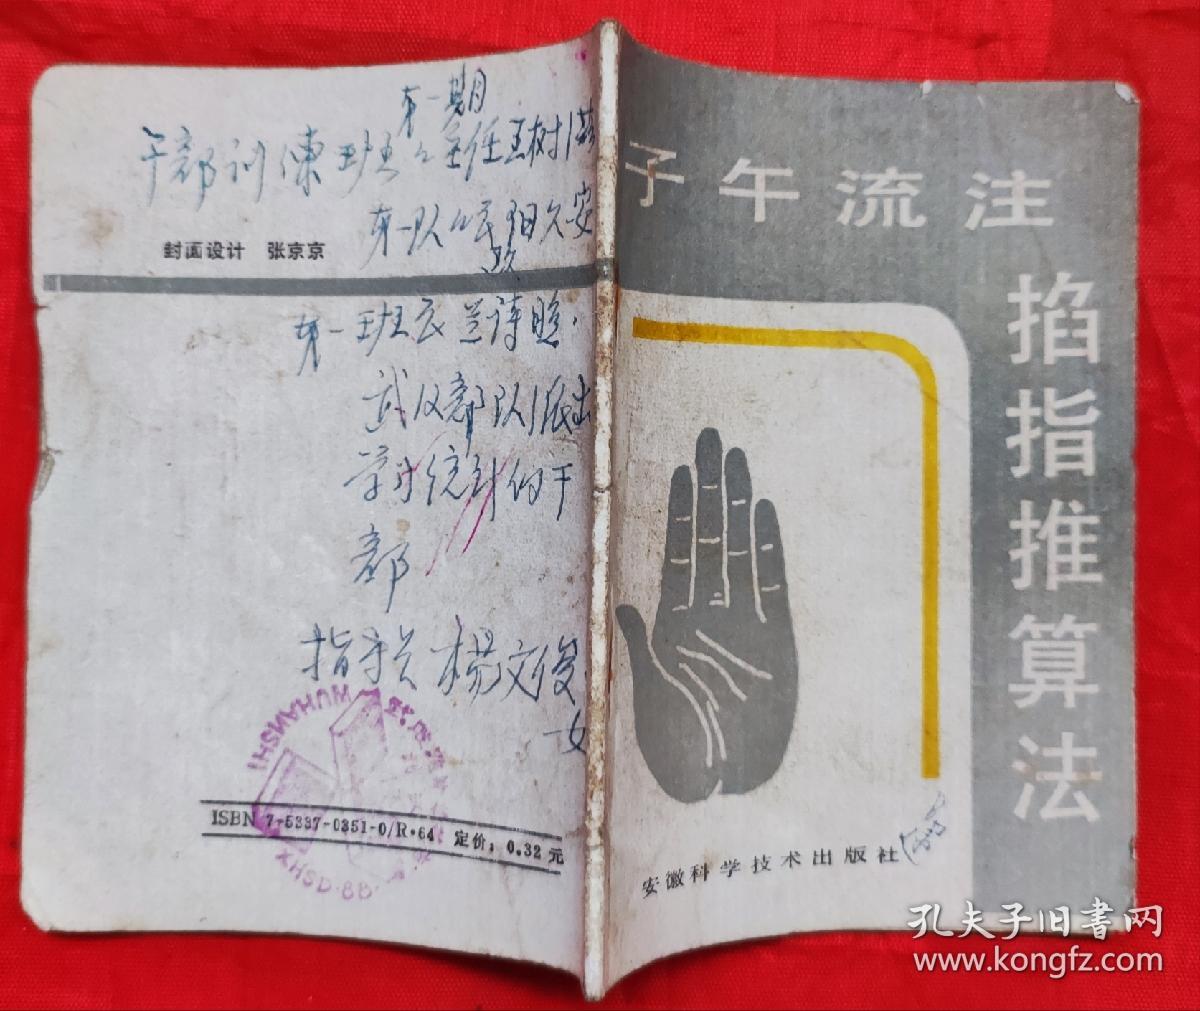 第一期
干部训陈班 主任王树
第一队
封面设计 张京京
第一班 诗照
武汉部队派出
学习统计的干
部
指导 杨文俊
女
WUHANSHI
XHSD·88
ISBN 7-5337-0351-0/R·64 定价：0.32元
子午流注
掐指推算法
安徽科学技术出版社
孔夫子旧书网
www.kongfz.com